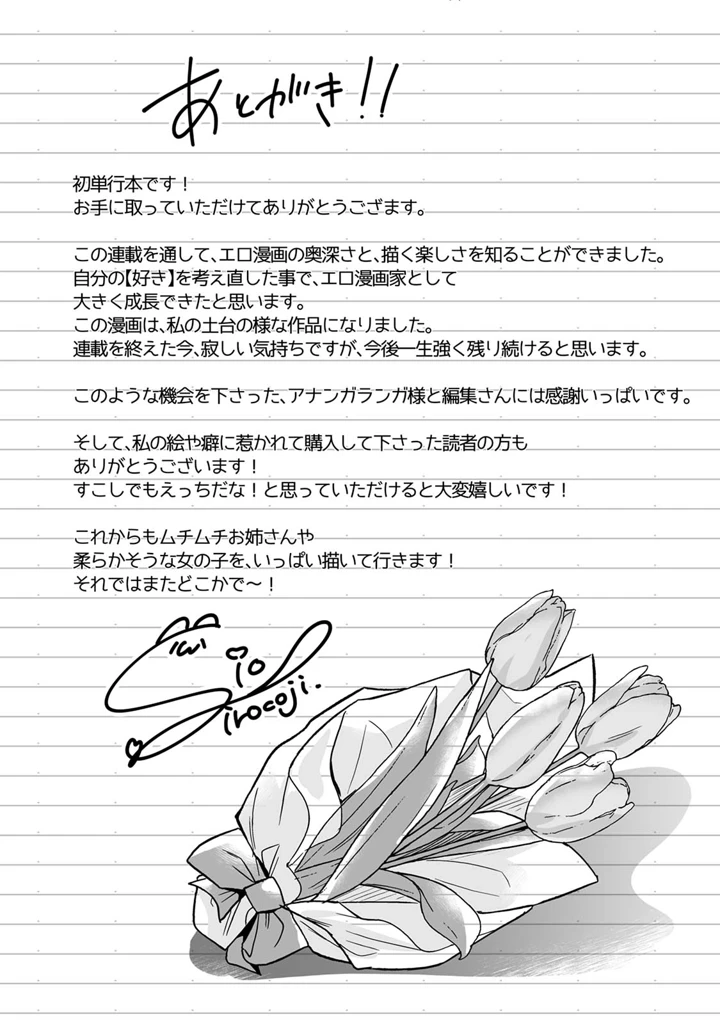 あとがき!!
初単行本です！
お手に取っていただけてありがとうござます。
この連載を通して、エロ漫画の奥深さと、描く楽しさを知ることができました。
自分の【好き】を考え直した事で、エロ漫画家として
大きく成長できたと思います。
この漫画は、私の土台の様な作品になりました。
連載を終えた今、寂しい気持ちですが、今後一生強く残り続けると思います。
このような機会を下さった、アナンガランガ様と編集さんには感謝いっぱいです。
そして、私の絵や癖に惹かれて購入して下さった読者の方も
ありがとうございます！
すこしでもえっちだな！と思っていただけると大変嬉しいです！
これからもムチムチお姉さんや
柔らかそうな女の子を、いっぱい描いて行きます！
それではまたどこかで〜！
Sio
Sirocoji.